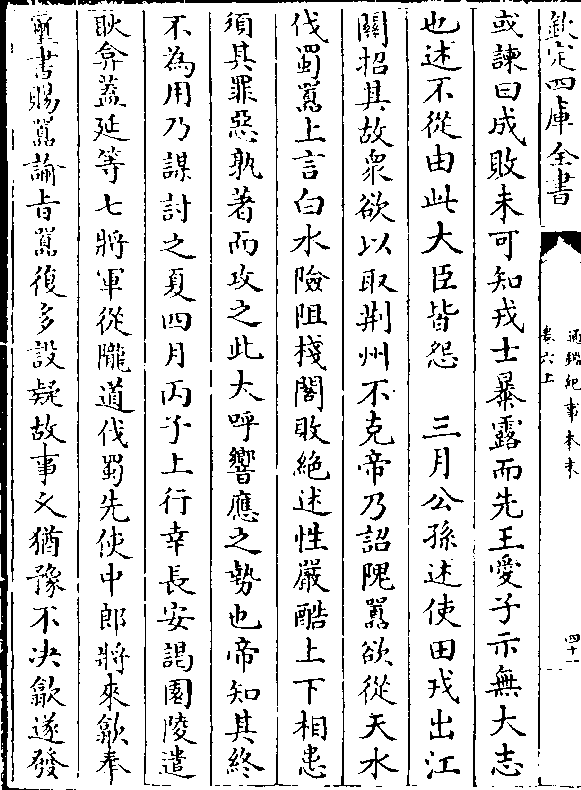 欽定四庫全書
通鑑紀事本末
卷六上
四十一
或諫曰成敗未可知戎士暴露而先王愛子示無大志
也述不從由此大臣皆怨　三月公孫述使田戎出江
關招其故衆欲以取荆州不克帝乃詔隗囂欲從天水
伐蜀囂上言白水險阻棧閣敗絶述性嚴酷上下相患
須其罪惡孰著而攻之此大呼響應之勢也帝知其終
不為用乃謀討之夏四月丙子上行幸長安謁園陵遣
耿弇蓋延等七將軍從隴道伐蜀先使中郎將來歙奉
璽書賜囂諭旨囂復多設疑故事文猶豫不决歙遂發